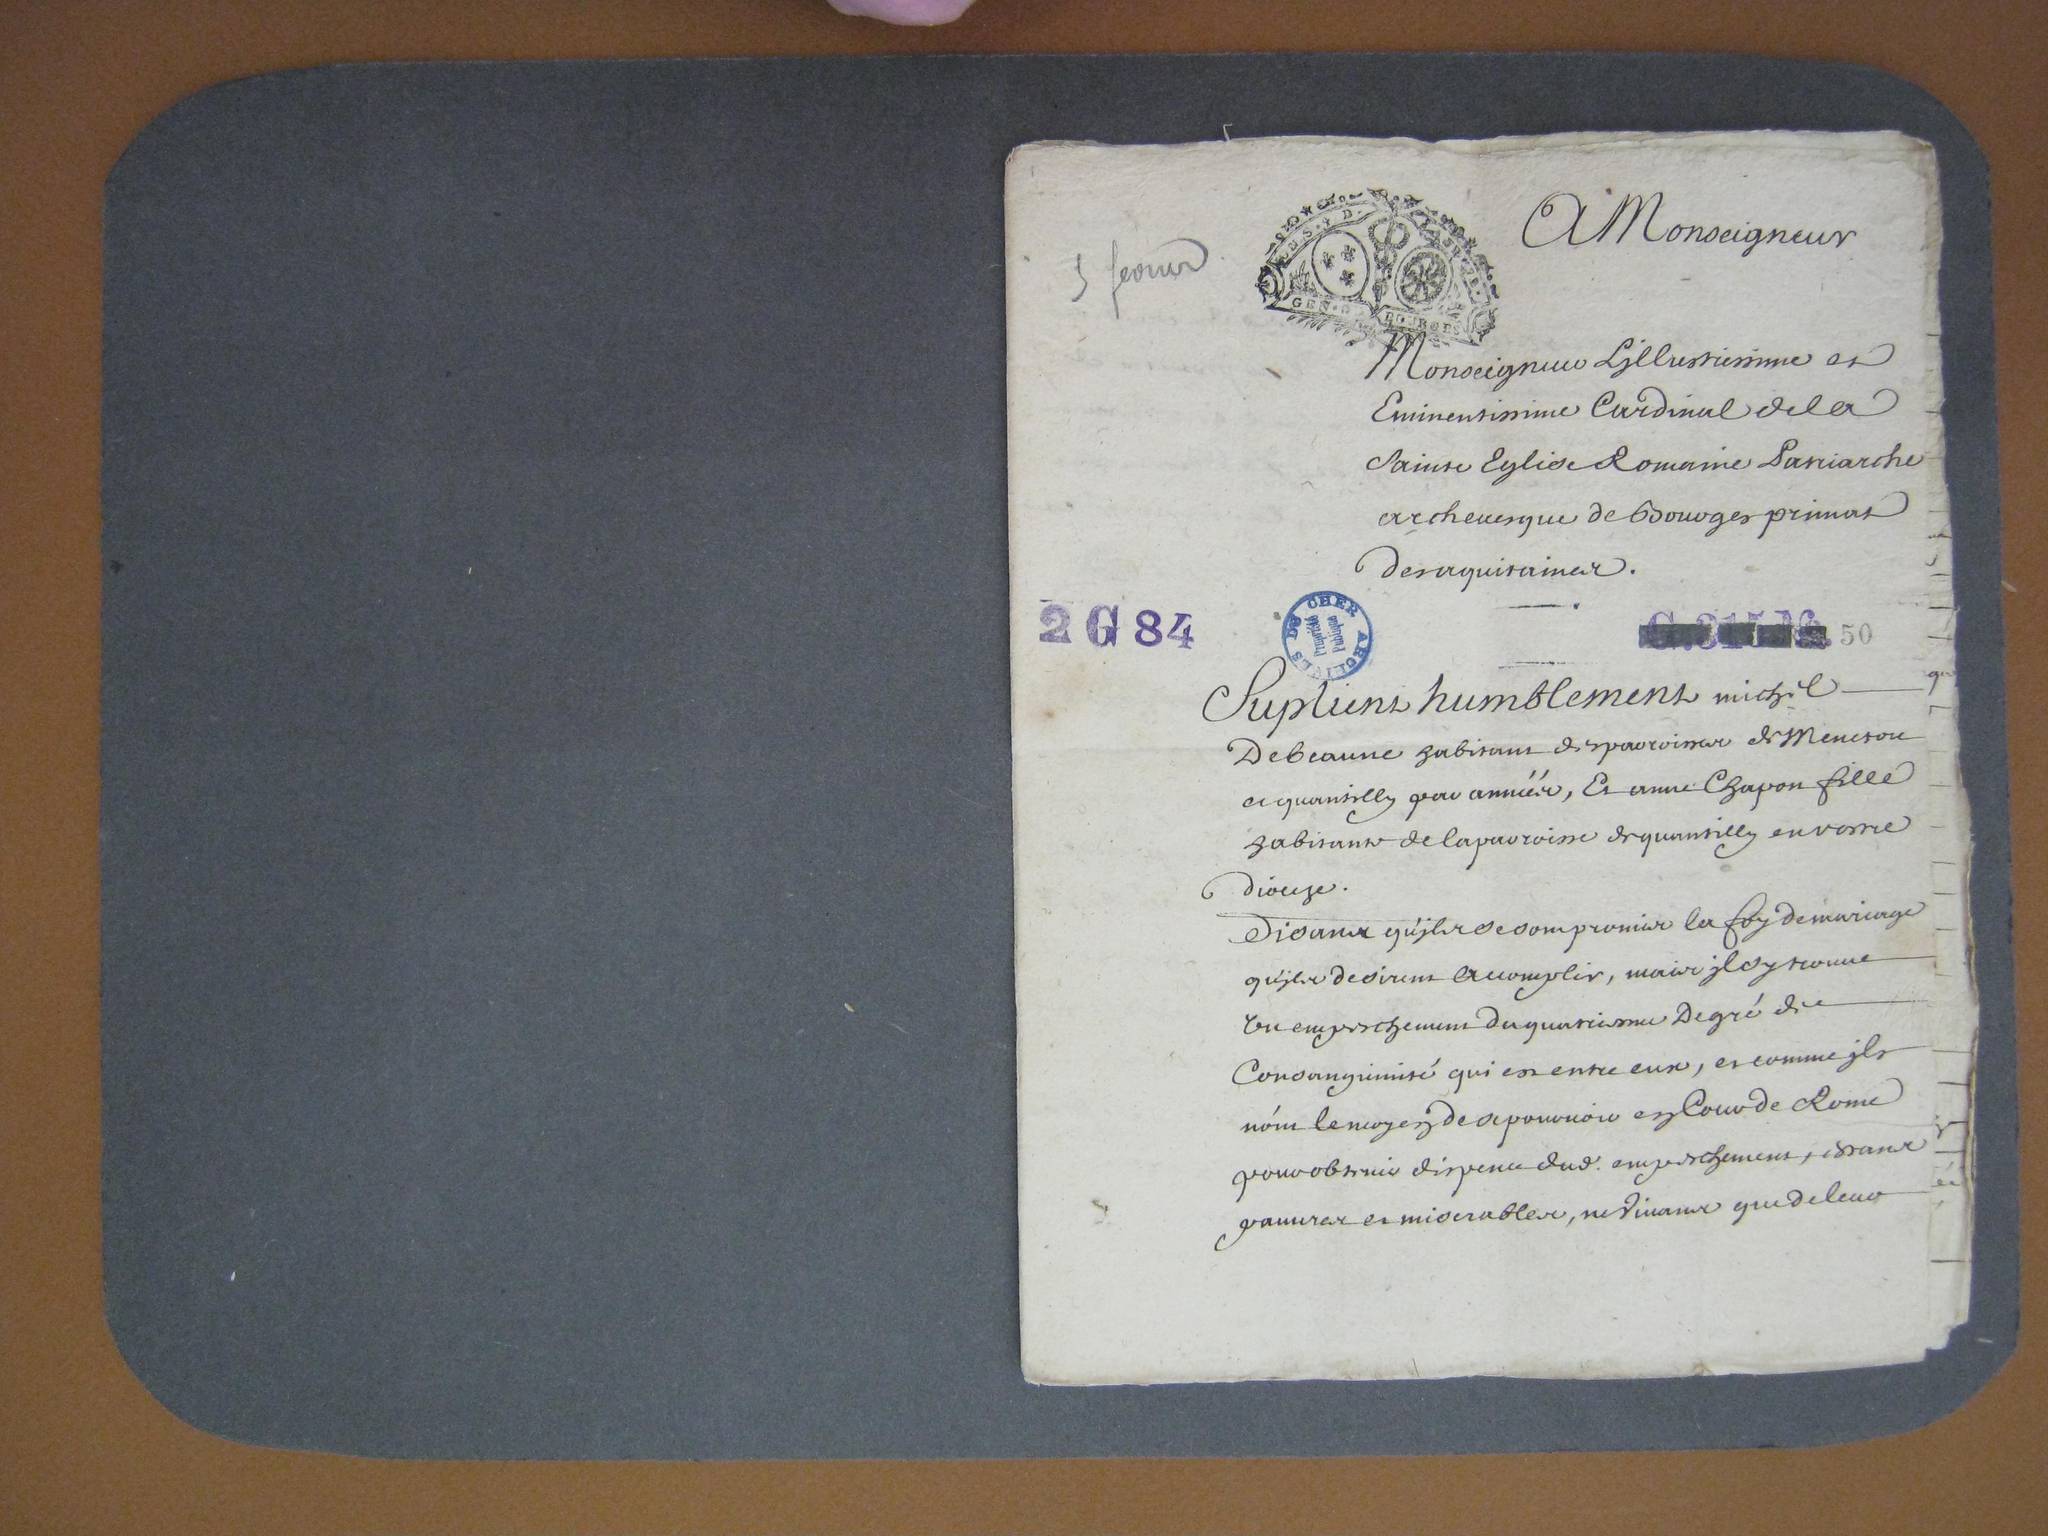 A Monseigneur
5 fevrier
GEN. DE BOURGES
Monseigneur Lillustrissime et
Eminentissime Cardinal de la
Sainte Eglise Romaine Patriarche
archevesque de Bourges primat
des aquitaines.
2 G 84
ARCHIVES DU CHER
Propriété
Publique
50
Suplient humblement michel
Debeaune habitant des paroisses de Menetou
et quantilly par années, Et anne Chapon fille
habitante de la paroisse de quantilly en vostre
diocese.
Disans qu'jls se sont promis la foy de mariage
qu'jls desirent accomplir, mais jl sy trouve
Un empeschement du quatriesme Degré de
Consanguinité qui est entre eux, et comme jls
n'ont le moyen de se pourvoir en Cour de Rome
pour obtenir dispence dud. empeschement, estans
pauvres et miserables, ne Vivans que de leur